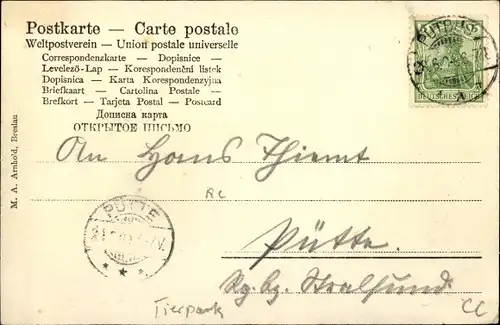 Postkarte — Carte postale
Weltpostverein — Union postale universelle
Correspondenzkarte — Dopisnice —
Levelező-Lap — Korespondenční listek
Dopisnica — Karta Korespondenzyjna
Briefkaart — Cartolina Postale —
Brefkort — Tarjeta Postal — Postcard
Дописна карта
ОТКРЫТОЕ ПІСЬМО
PUTBUS
DEUTSCHES REICH
M. A. Arnhold, Breslau
An Hans Thiemt
RC
Pütte
PÜTTE
Rg. bz. Stralsund
Tierpark
CC